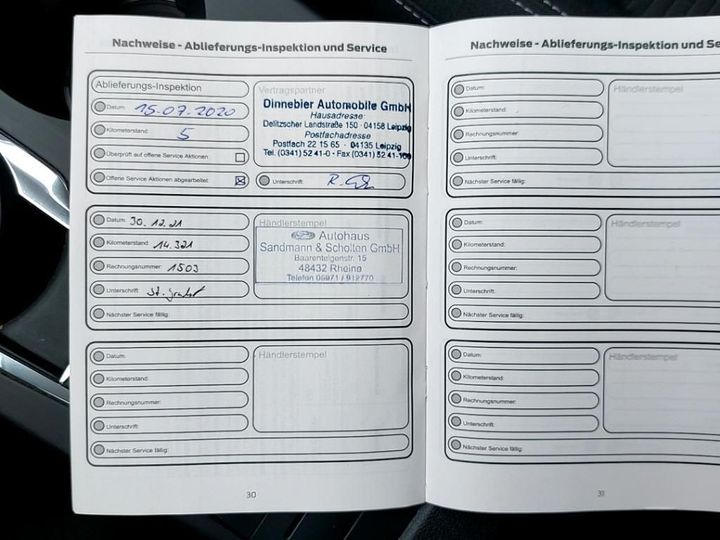 Nachweise - Ablieferungs-Inspektion und Service
Ablieferungs-Inspektion
Datum: 15.07.2020
Kilometerstand: 5
Überprüft auf offene Service Aktionen:
Offene Service Aktionen abgearbeitet:
Vertragspartner
Dinnebier Automobile GmbH
Hausadresse:
Delitzscher Landstraße 150 · 04158 Leipzig
Postfachadresse
Postfach 22 15 65 · 04135 Leipzig
Tel. (0341) 52 41-0 · Fax (0341) 52 41-100
Unterschrift:
Datum: 30.12.21
Kilometerstand: 14.321
Rechnungsnummer: 1503
Unterschrift:
Nächster Service fällig:
Händlerstempel
Autohaus
Sandmann & Scholten GmbH
48432 Rheine
Telefon 05971 / 912770
Datum:
Kilometerstand:
Rechnungsnummer:
Unterschrift:
Nächster Service fällig:
Händlerstempel
30
Nachweise - Ablieferungs-Inspektion und Se
Datum:
Kilometerstand:
Rechnungsnummer:
Unterschrift:
Nächster Service fällig:
Händlerstempel
Datum:
Kilometerstand:
Rechnungsnummer:
Unterschrift:
Nächster Service fällig:
Händlerstempel
Datum:
Kilometerstand:
Rechnungsnummer:
Unterschrift:
Nächster Service fällig:
Händlerstempel
31